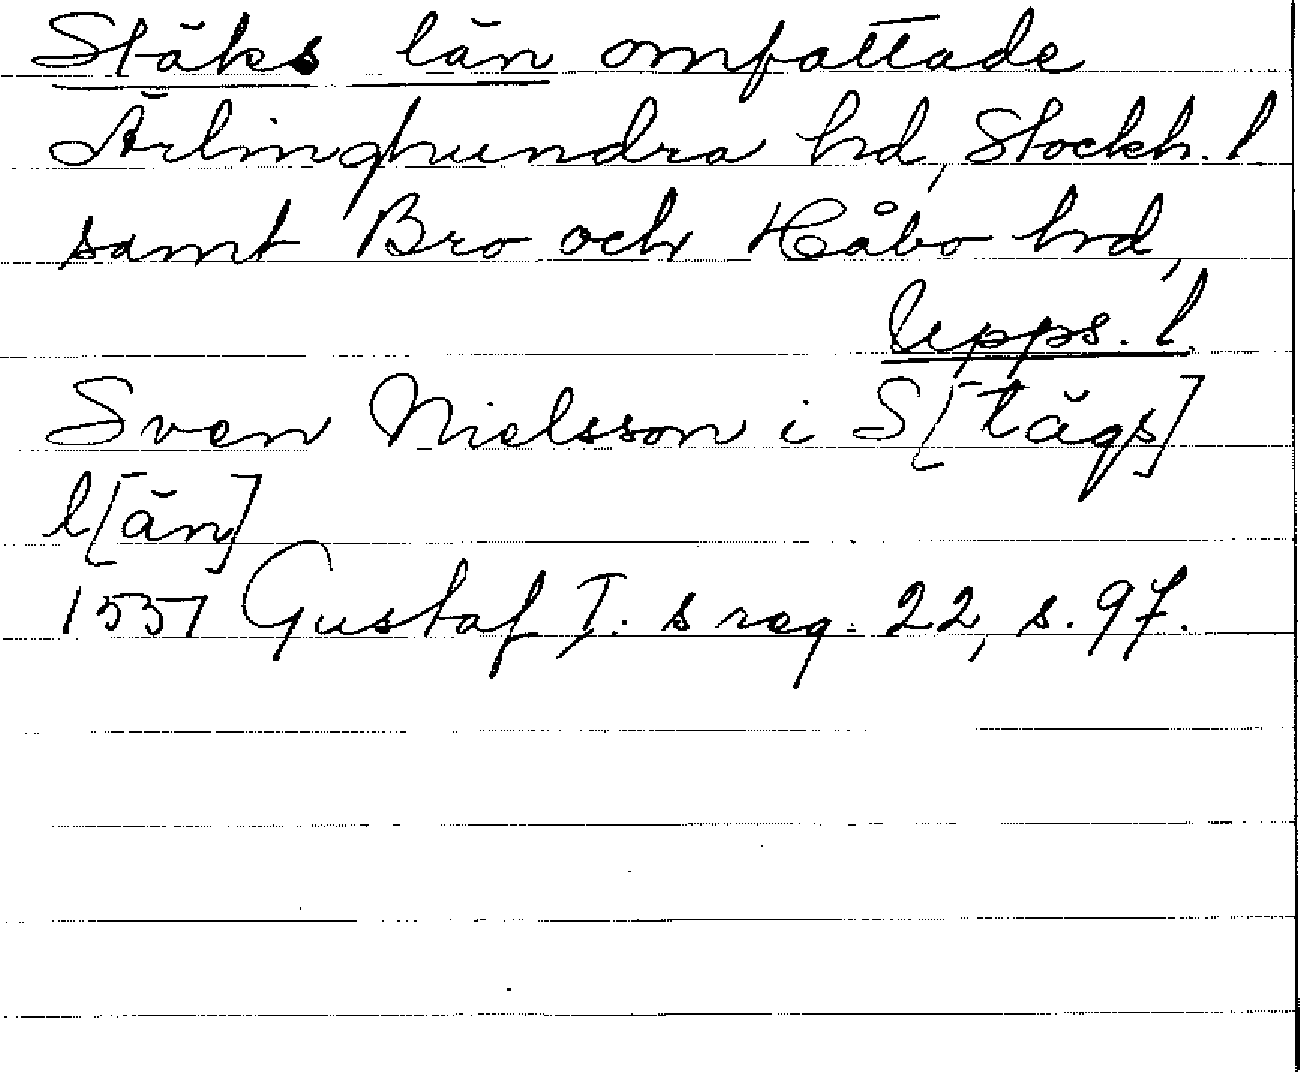 Stäks län omfattade
Ärlinghundra hd, Stockh. l.
samt Bro och Håbo hd,
Upps. l.
Sven Nielsson i S[tägs]
l[än]
1551 Gustaf I: s reg. 22, s. 97.